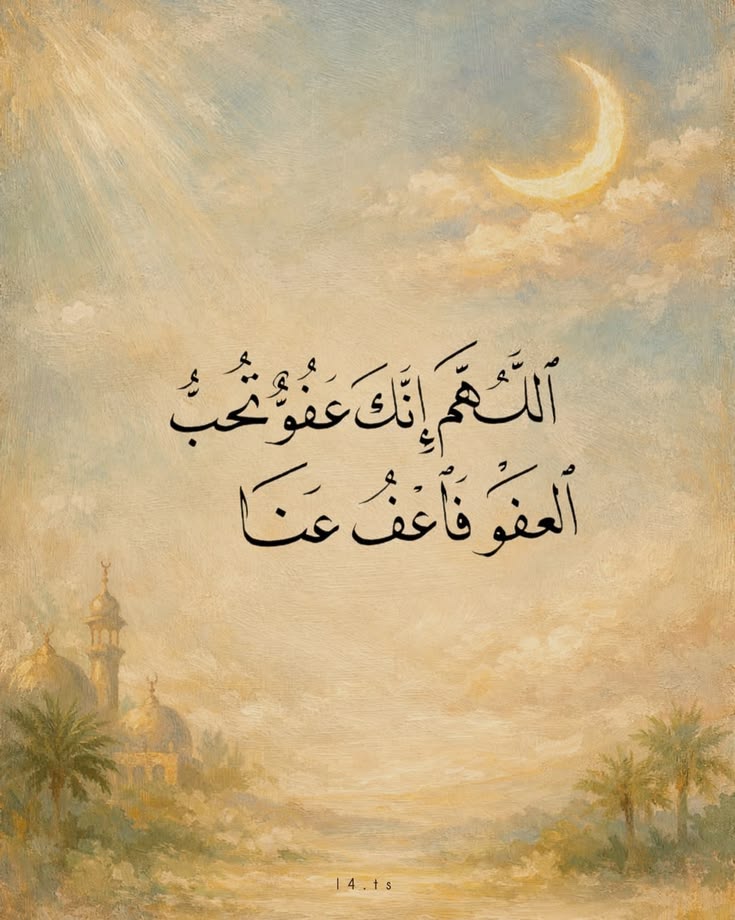 ٱللَّهُمَّ إِنَّكَ عَفُوٌّ تُحُبُّ
ٱلعفَوْ فَٱعْفُ عَنَا
l4.ts